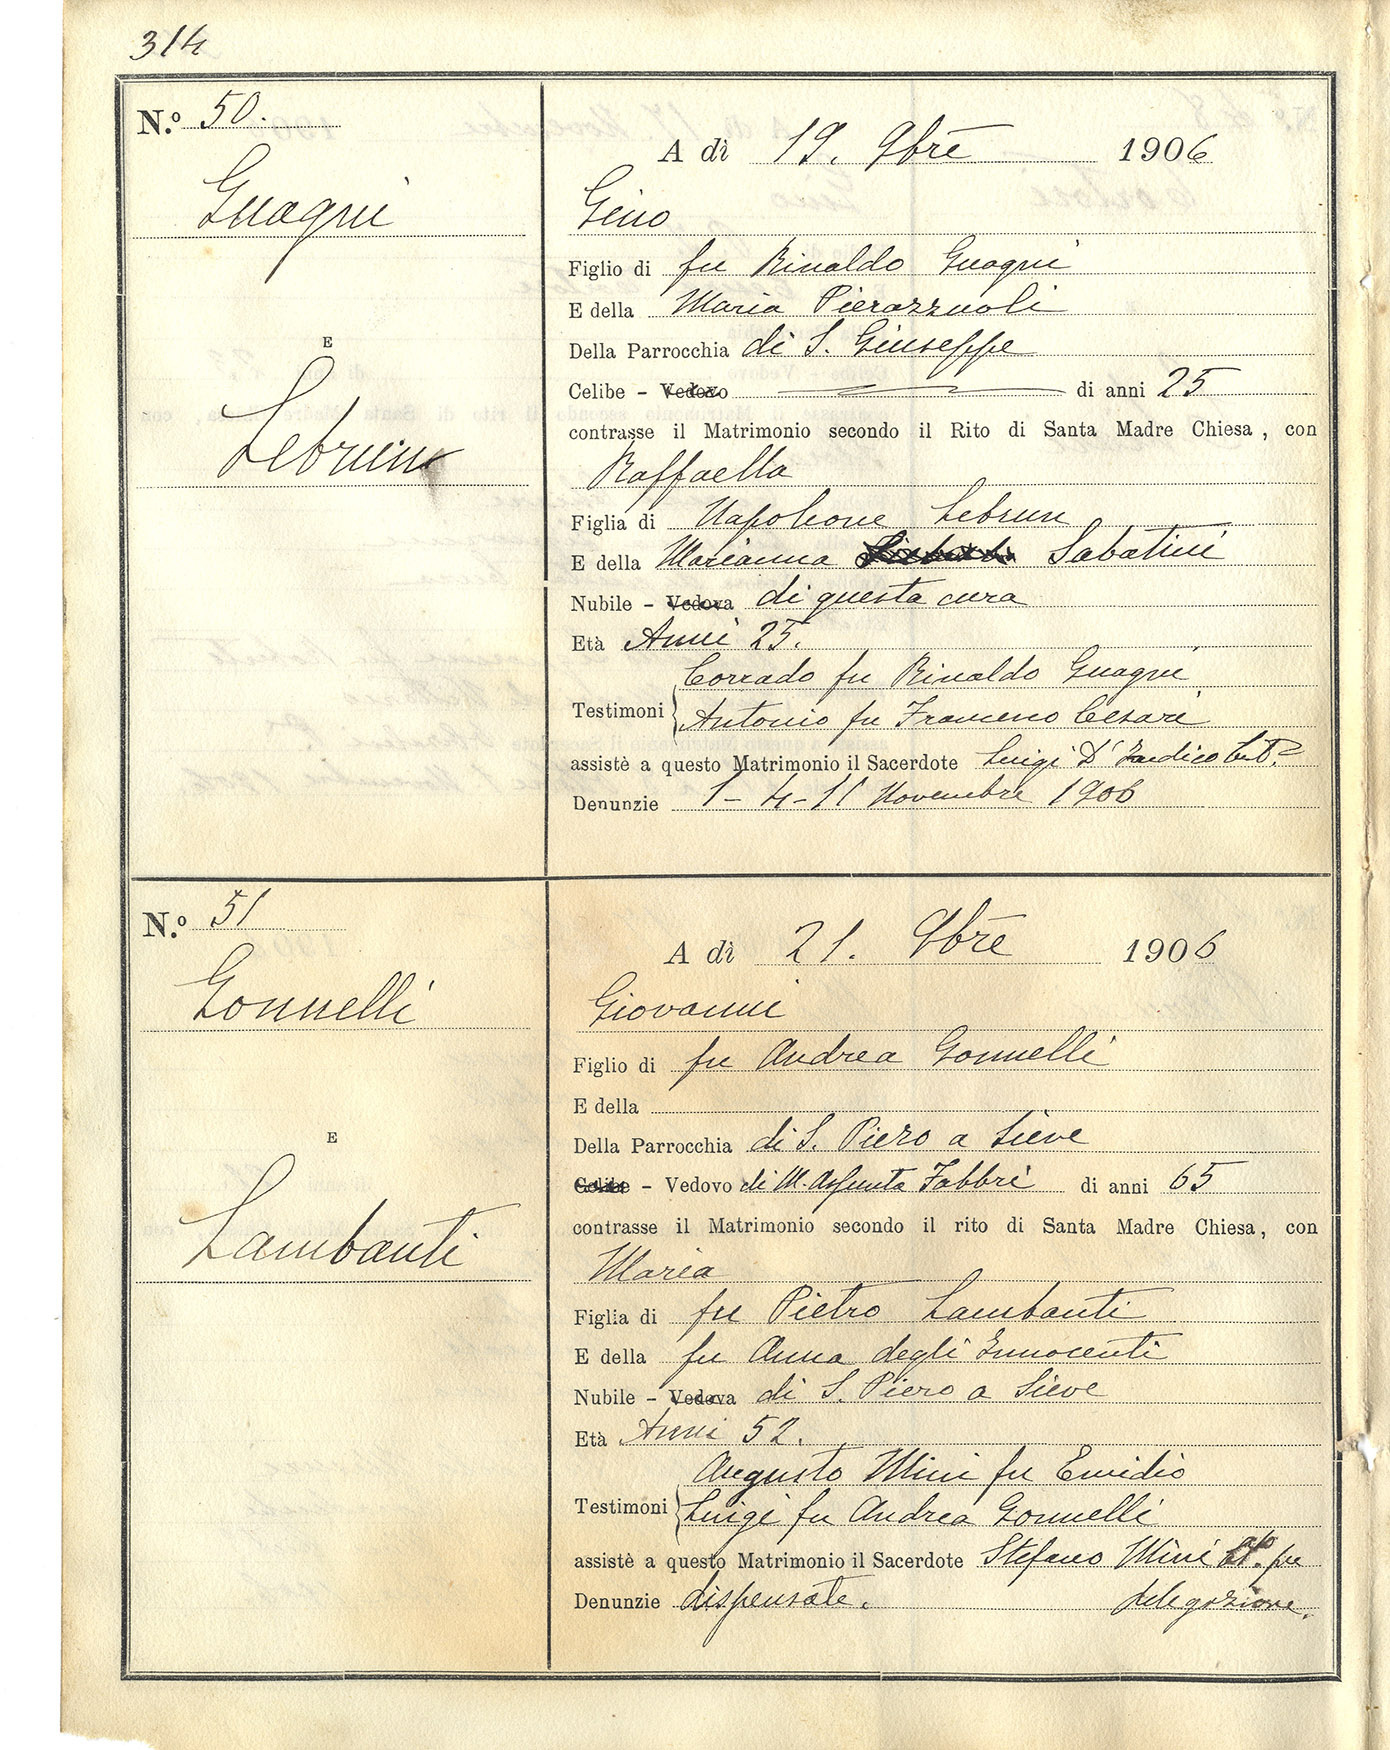 314
N.º 50.
A dì 19. 9bre 1906
Guagni
Gino
Figlio di fu Rinaldo Guagni
E della Maria Pierazzuoli
E
Della Parrocchia di S. Giuseppe
Lebrun
Celibe - Vedovo di anni 25
contrasse il Matrimonio secondo il Rito di Santa Madre Chiesa, con
Raffaella
Figlia di Napoleone Lebrun
E della Marianna Sabatini
Nubile - Vedova di questa cura
Età Anni 25.
Corrado fu Rinaldo Guagni
Testimoni Antonio fu Francesco Cesari
assistè a questo Matrimonio il Sacerdote Luigi
Denunzie 1 - 4 - 11 Novembre 1906
N.º 51
A dì 21. 9bre 1906
Gonnelli
Giovanni
Figlio di fu Andrea Gonnelli
E della
E
Della Parrocchia di S. Piero a Sieve
Lambanti
Celibe - Vedovo di M. Assunta Fabbri di anni 65
contrasse il Matrimonio secondo il rito di Santa Madre Chiesa, con
Maria
Figlia di fu Pietro Lambanti
E della fu Anna degli Innocenti
Nubile - Vedova di S. Piero a Sieve
Età Anni 52.
Augusto Mini fu Emidio
Testimoni Luigi fu Andrea Gonnelli
assistè a questo Matrimonio il Sacerdote Stefano Mini
Denunzie dispensate. delegazione.